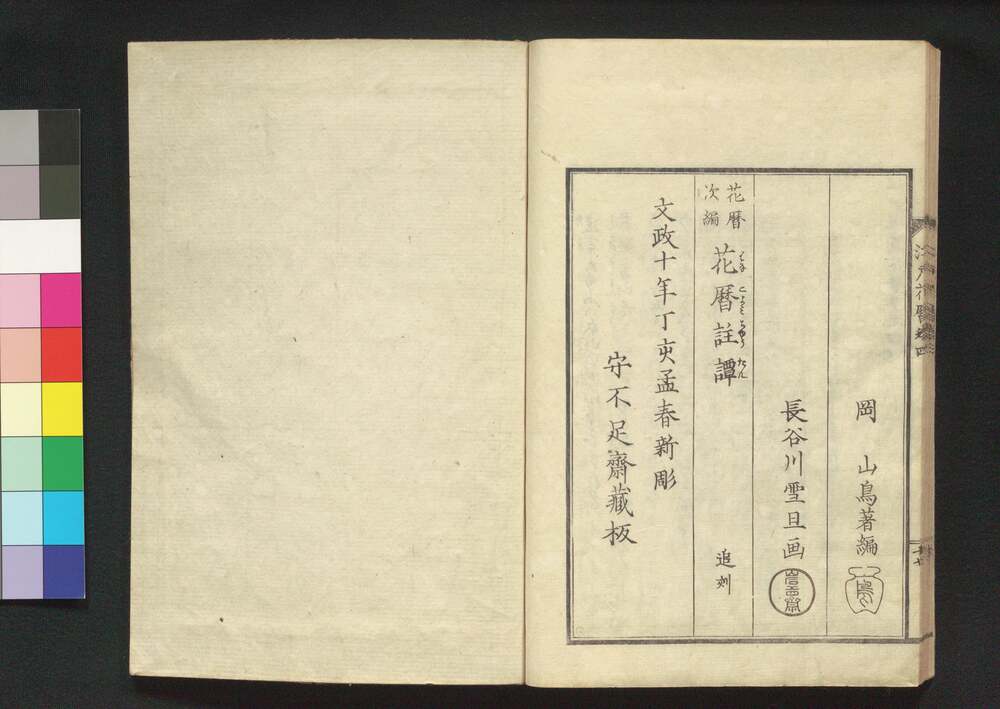 岡 山鳥著編
長谷川雪旦画
花暦
次編
花暦註譚 追刻
文政十年丁亥孟春新彫
守不足齋藏板